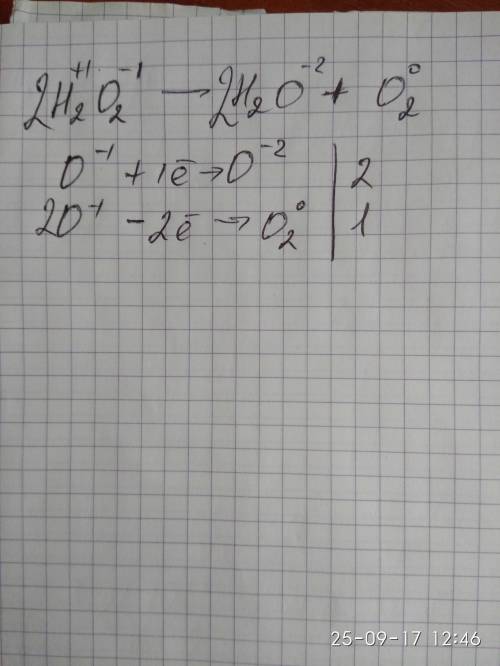 2H₂⁺¹O₂⁻¹ → 2H₂O⁻² + O₂⁰
O⁻¹ + 1ē → O⁻² | 2
2O⁻¹ - 2ē → O₂⁰ | 1
25-09-17 12:46